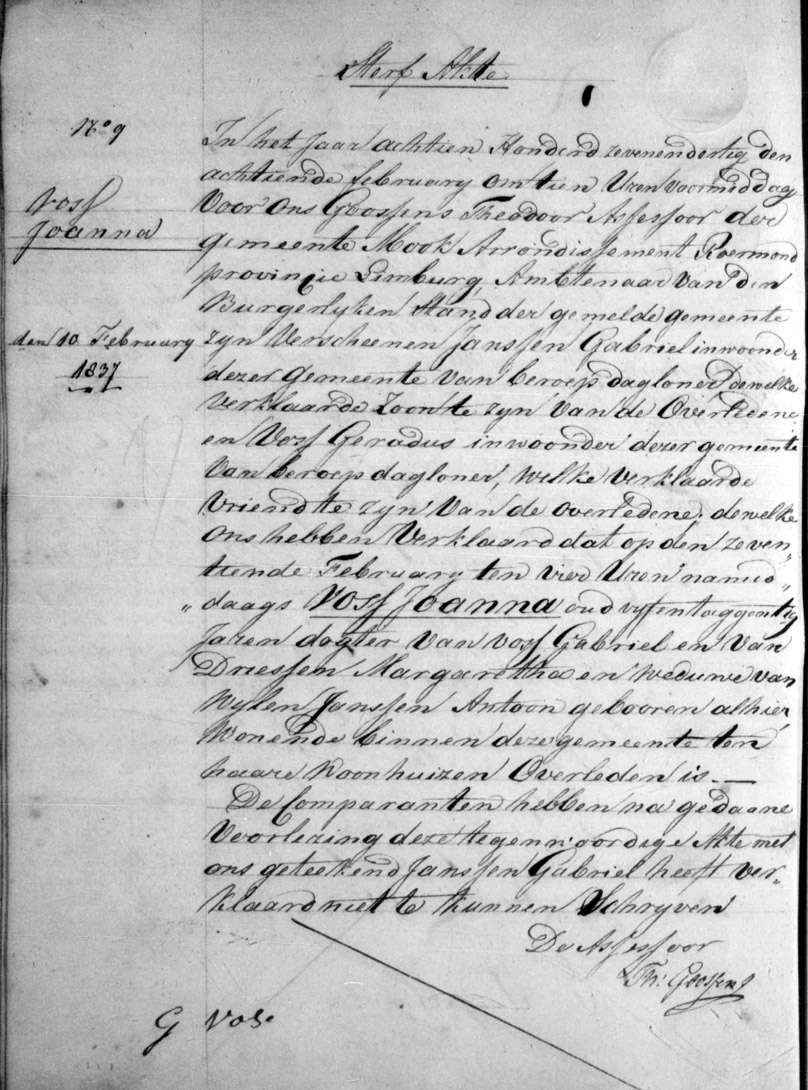 Sterf Akte
No 9
Voss
Joanna
den 10 February
1837
In het Jaar achtien Honderd zevenendertig den
achtiende february om tien Uren voormiddag
Voor Ons Goossens Theodoor Assessoor der
gemeente Mook Arrondissement Roermond
provincie Limburg Ambtenaar van den
Burgerlyken Stand der gemelde gemeente
zyn Verscheenen Janssen Gabriel inwoonder
dezer Gemeente van beroep dagloner Dewelke
verklaarde Zoon te zyn van de Overledene
en Voss Geradus inwoonder dezer gemeente
Van beroep dagloner, welke verklaarde
vriend te zyn van de overledene. dewelke
Ons hebben Verklaard dat op den zeven„
tiende February ten vier Uren namid„
„daags Voss Joanna oud vyfentaggentig
Jaren dogter van voss Gabriel en van
Driessen Margaretha en weduwe van
wylen Janssen Antoon gebooren alhier
Wonende binnen deze gemeente ten
haare Woonhuizen Overleden is. —
De Comparanten hebben na gedaane
Voorlezing deze tegenwoordige Akte met
ons geteekend Janssen Gabriel heeft ver„
klaard niet te kunnen Schryven
De Assessoor
Th: Goossens
G Vos.